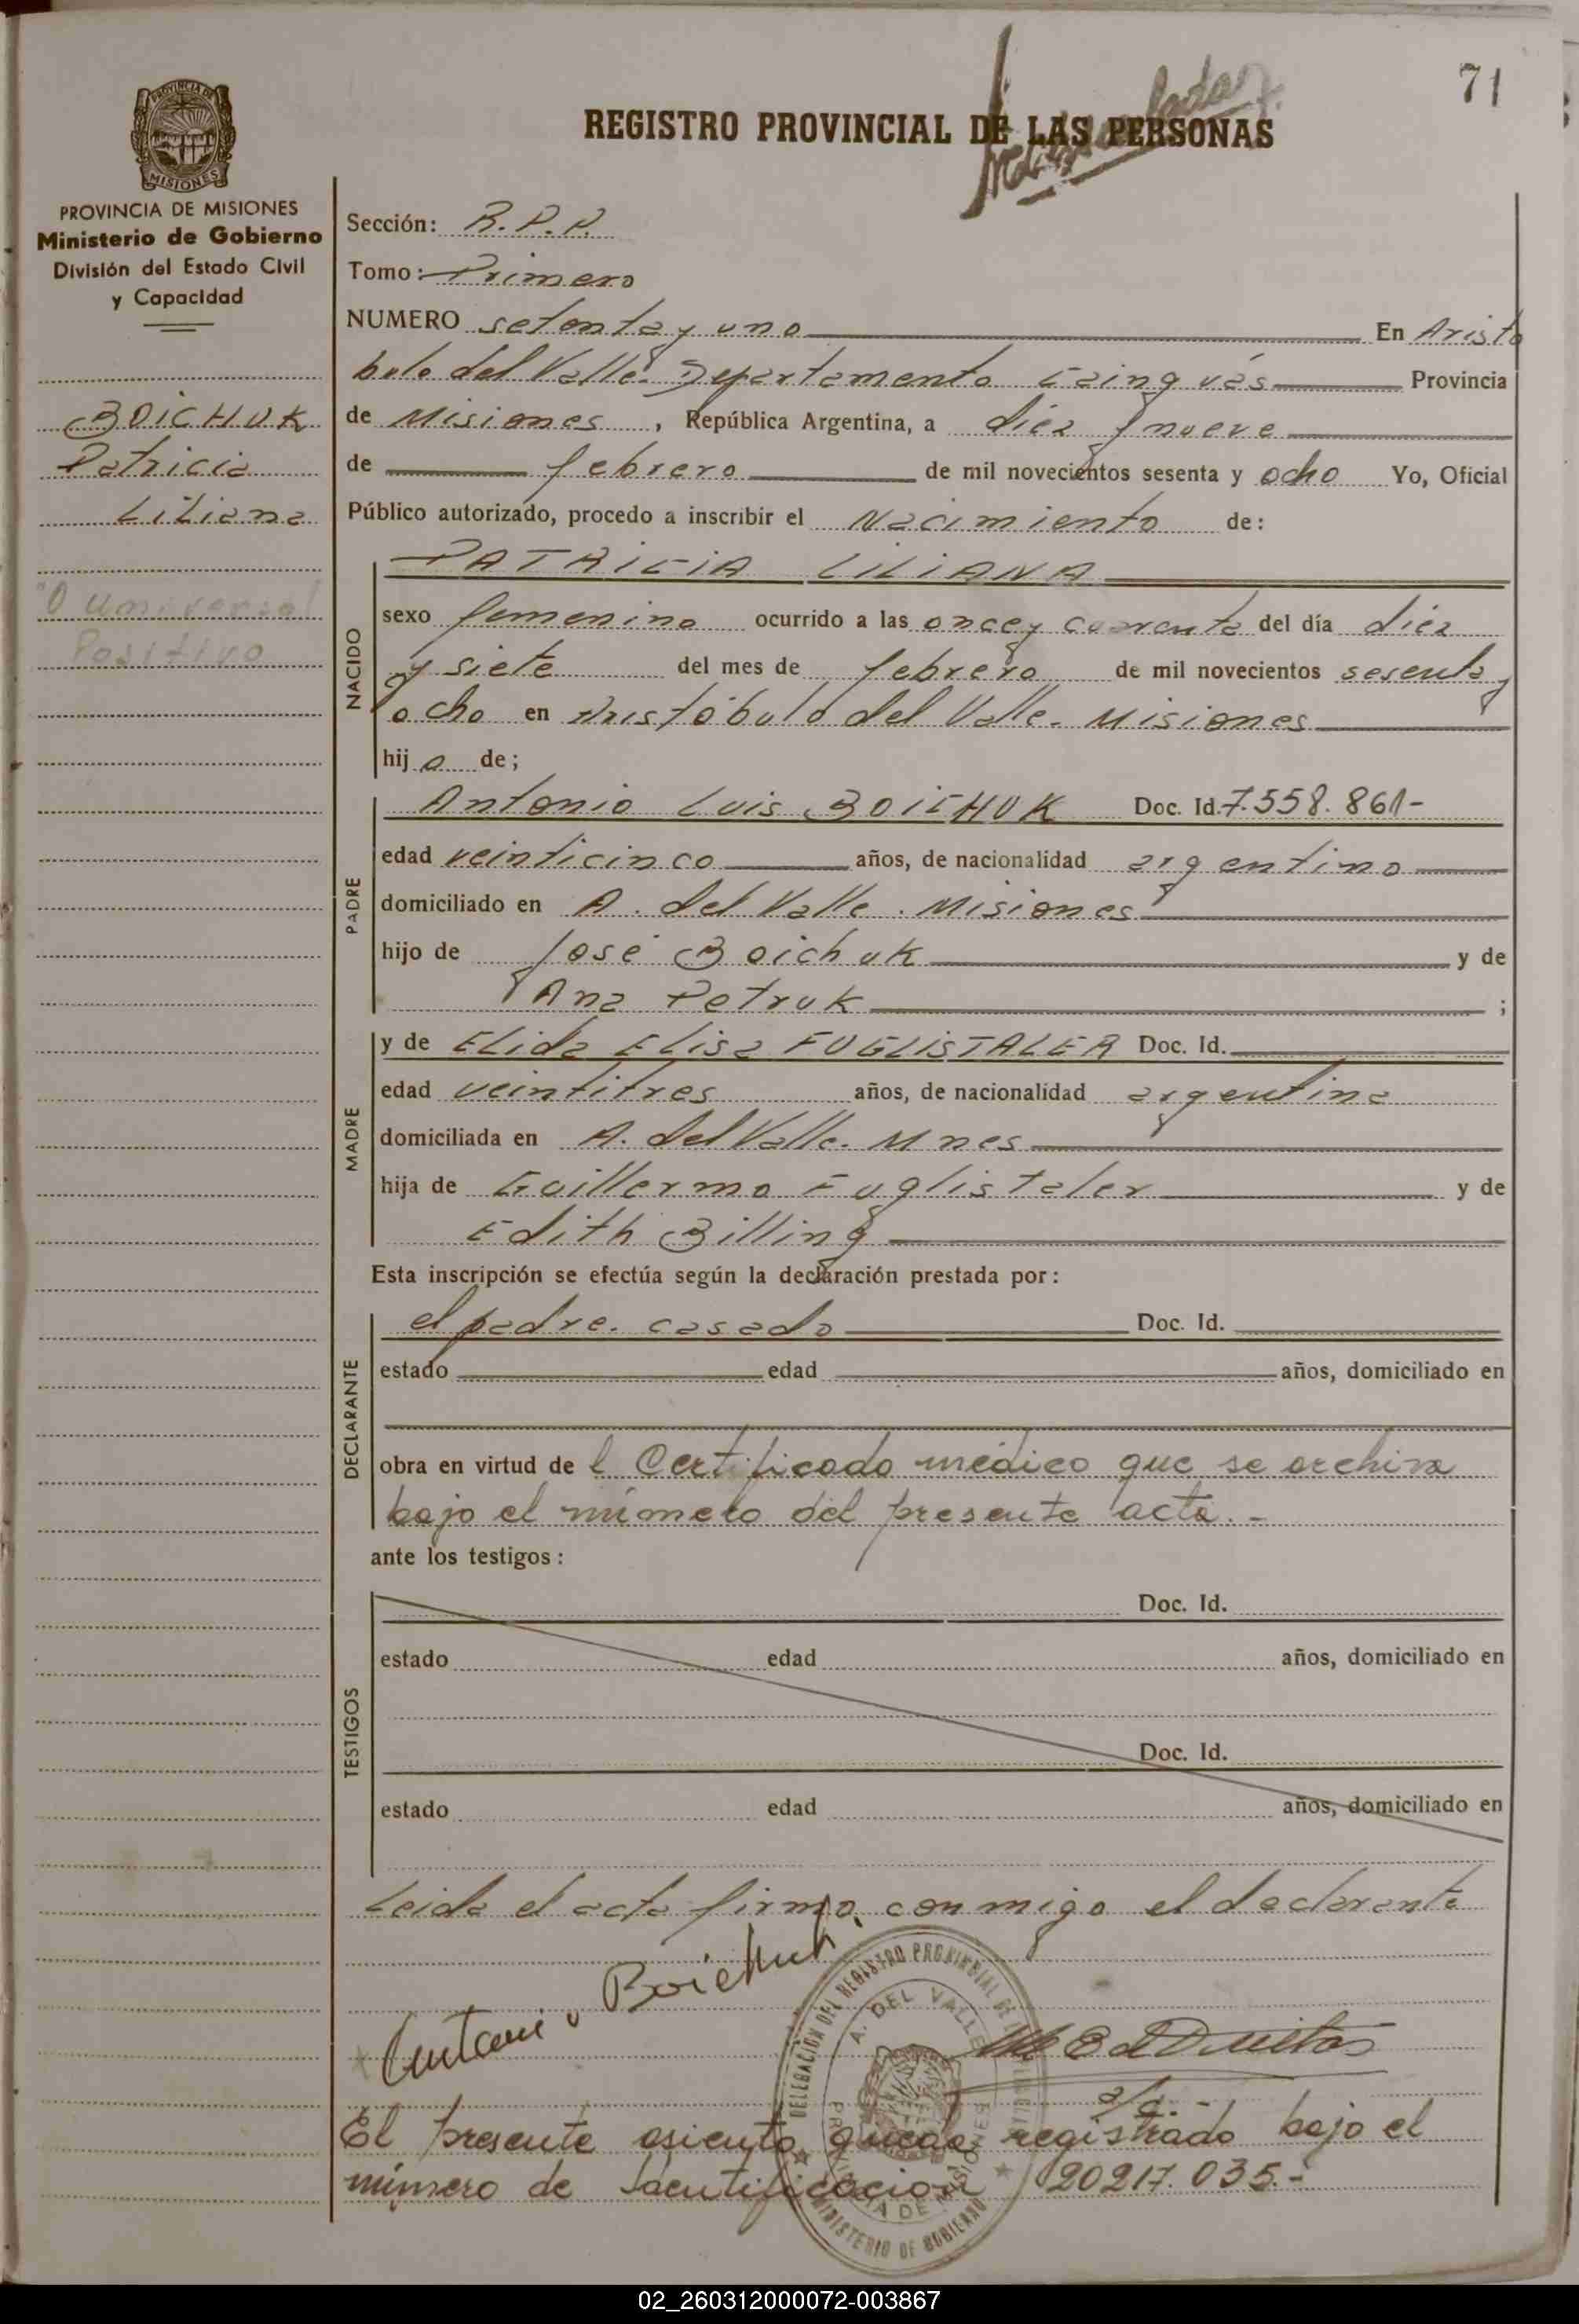 71
REGISTRO PROVINCIAL DE LAS PERSONAS
PROVINCIA DE
MISIONES
PROVINCIA DE MISIONES
Ministerio de Gobierno
División del Estado Civil
y Capacidad
BOICHUK
Patricia
Liliana
"O universal
Positivo
Sección: R.P.P.
Tomo: Primero
NUMERO setenta y uno En Aristo
bulo del Valle. Departamento Caing uás Provincia
de Misiones, República Argentina, a diez y nueve
de febrero de mil novecientos sesenta y ocho Yo, Oficial
Público autorizado, procedo a inscribir el Nacimiento de:
NACIDO
PATRICIA LILIANA
sexo femenino ocurrido a las once y cuarenta del día diez
y siete del mes de febrero de mil novecientos sesenta y
ocho en Aristóbulo del Valle. Misiones
hij a de;
PADRE
Antonio Luis BOICHUK Doc. Id. 7.558.861-
edad veinticinco años, de nacionalidad argentino
domiciliado en A. del Valle. Misiones
hijo de José Boichuk y de
Ana Petruk ;
MADRE
y de Elida Elisa FUGLISTALER Doc. Id.
edad veintitres años, de nacionalidad argentina
domiciliada en A. del Valle. Mnes
hija de Guillermo Fuglistaler y de
Edith Billing
Esta inscripción se efectúa según la declaración prestada por:
DECLARANTE
el padre. casado Doc. Id.
estado edad años, domiciliado en
obra en virtud de l Certificado médico que se archiva
bajo el número del presente acta.-
ante los testigos:
TESTIGOS
Doc. Id.
estado edad años, domiciliado en
Doc. Id.
estado edad años, domiciliado en
Leida el acta firma conmigo el declarante
Antonio Boichuk
DELEGACION DEL REGISTRO PROVINCIAL DE
A. DEL VALLE
PROVINCIA DE MISIONES
MINISTERIO DE GOBIERNO
a/c.-
El presente asiento queda registrado bajo el
número de Identificación 20217.035.-
02_260312000072-003867